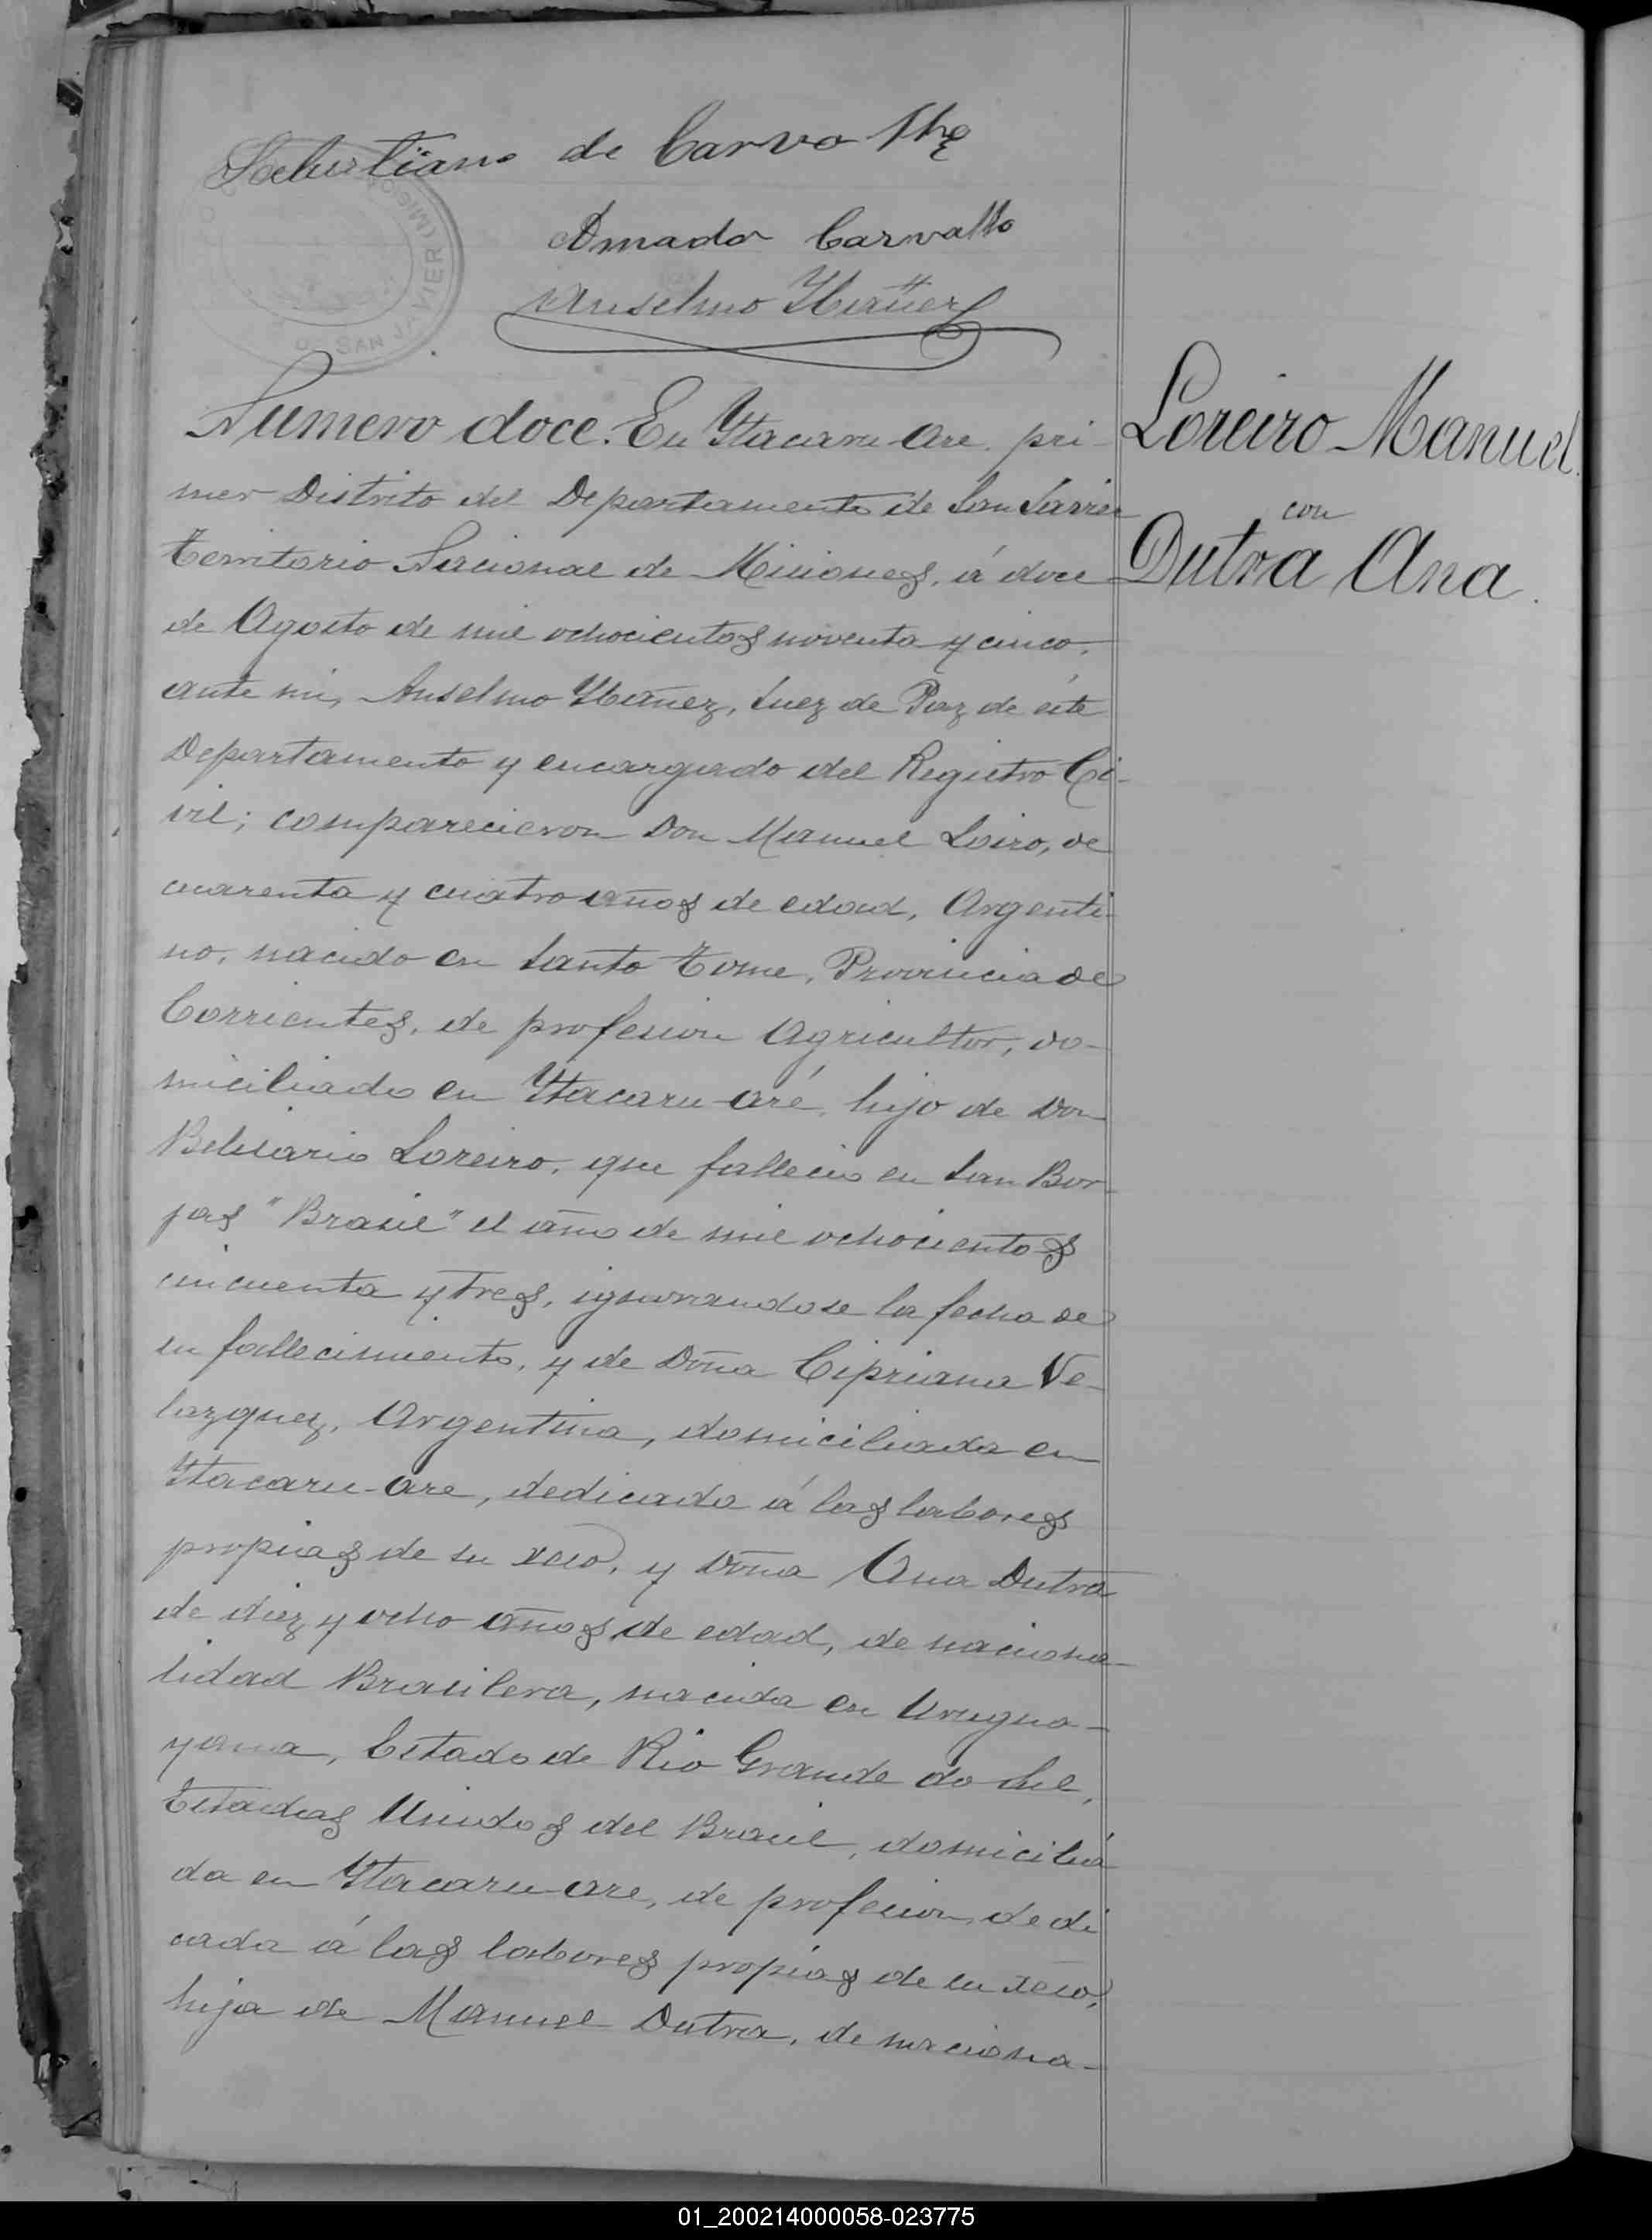 Salustiano de Carvo lho
Amador Carvallo
Anselmo Ybañez
DE SAN JAVIER (MISIO
Numero doce. En Ytacaru-are, pri-
mer Distrito del Departamento de San Javier
Territorio Nacional de Misiones, á doce
de Agosto de mil ochocientos noventa y cinco,
ante mi, Anselmo Ybañez, Juez de Paz de éste
Departamento y encargado del Registro Ci-
vil; comparecieron Don Manuel Loiro, de
cuarenta y cuatro años de edad, Argenti-
no, nacido en Santo Tome, Provincia de
Corrientes, de profesion Agricultor, do-
miciliado en Ytacaru-aré, hijo de Don
Belisario Loreiro, que fallecio en San Bor-
jas "Brasil" el año de mil ochocientos
cincuenta y tres, ignorandose la fecha de
su fallecimiento, y de Doña Cipriana Ve-
lazquez, Argentina, domiciliada en
Ytacaru-are, dedicada á las labores
propias de su sexo, y Doña Ana Dutra
de diez y ocho años de edad, de naciona-
lidad Brasilera, nacida en Urugua-
yana, Estado de Rio Grande do Sul,
Estados Unidos del Brasil, domicilia
da en Ytacaru-are, de profesion dedi
cada á las labores propias de su sexo,
hija de Manuel Dutra, de naciona-
Loreiro Manuel
con
Dutra Ana.
01_200214000058-023775